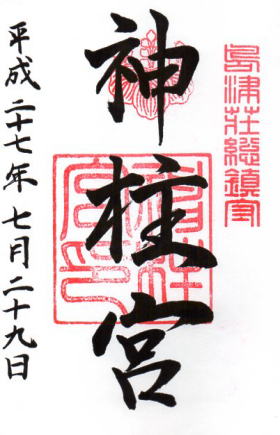 島津荘総鎮守
神柱宮
平成二十七年七月二十九日